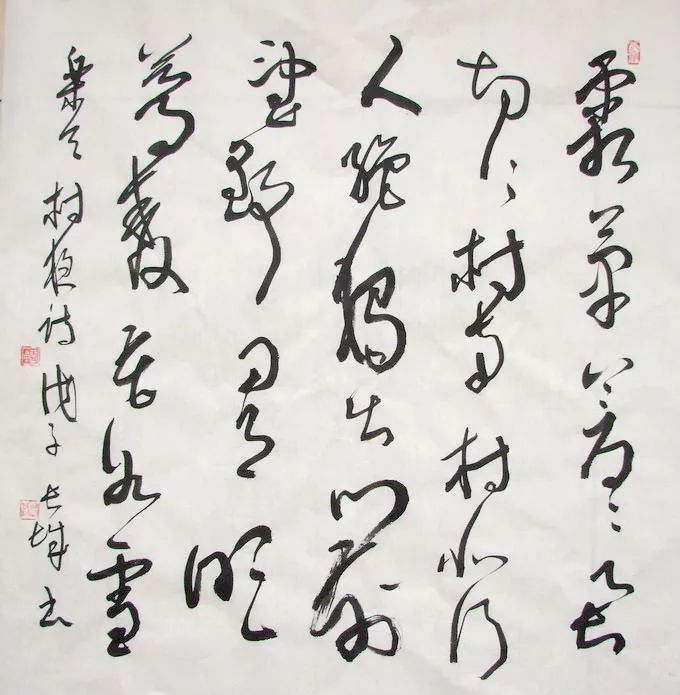 霜草蒼々蟲
切々村南村北行
人絕獨出門前
望野田月明
蕎麥花如雪
樂天村夜詩 戊子 長城書